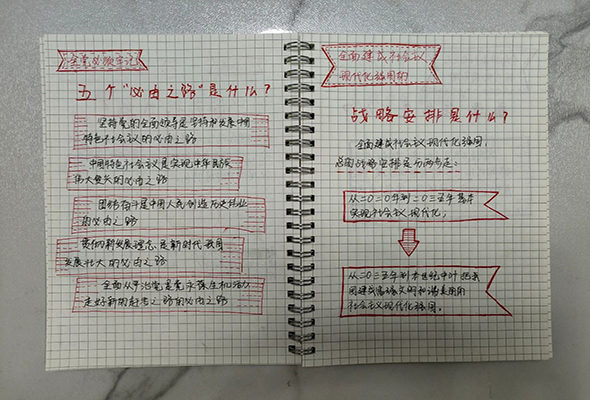 全党必须牢记
五个“必由之路”是什么?
坚持党的全面领导是坚持和发展中国
特色社会主义的必由之路
中国特色社会主义是实现中华民族
伟大复兴的必由之路
团结奋斗是中国人民创造历史伟业
的必由之路
贯彻新发展理念是新时代我国
发展壮大的必由之路
全面从严治党是党永葆生机活力
走好新的赶考之路的必由之路
全面建成社会主义
现代化强国的
战略安排是什么?
全面建成社会主义现代化强国,
总的战略安排是分两步走:
从二〇二〇年到二〇三五年基本
实现社会主义现代化;
从二〇三五年到本世纪中叶把我
国建成富强民主文明和谐美丽的
社会主义现代化强国。